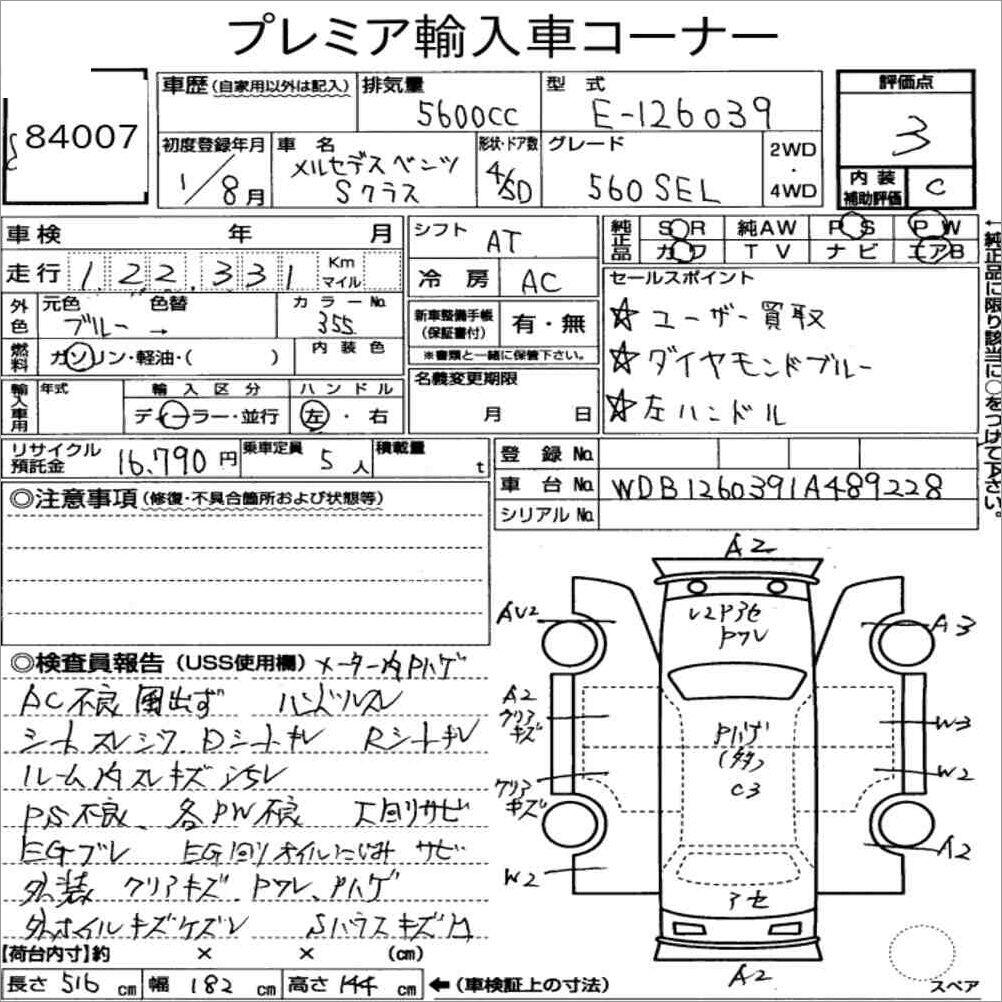 プレミア輸入車コーナー
84007
車歴(自家用以外は記入) 排気量 5600CC 型式 E-126039 評価点 3
初度登録年月 1/8月 車名 メルセデスベンツ Sクラス 形状・ドア数 4/5D グレード 560SEL 2WD・4WD 内装補助評価 C
車検 年 月
走行 1 2 2 3 3 1 Km マイル
外色 元色 ブルー → 色替 カラーNo. 355
燃料 ガソリン・軽油・( ) 内装色
輸入車用 年式 輸入区分 ディーラー・並行 ハンドル 左・右
リサイクル預託金 16,790円 乗車定員 5人 積載量 t
シフト AT
冷房 AC
新車整備手帳(保証書付) 有・無
※書類と一緒に保管下さい。
名義変更期限
月 日
純正品 SR 純AW PS PW
カワ TV ナビ エアB
セールスポイント
☆ユーザー買取
☆ダイヤモンドブルー
☆左ハンドル
←純正品に限り該当に○をつけて下さい。
登録No.
車台No. WDB1260391A489228
シリアルNo.
◎注意事項(修復・不具合箇所および状態等)
◎検査員報告(USS使用欄) メーター内Pハゲ
AC不良 風出ず ハンドルスレ
シートスレシワ、Dシートキレ Rシートキレ
ルーム内スレキズ
PS不良、各PW不良 下回リサビ
EGブレ EG回リオイルにじみ サビ
外装 クリアキズ、Pワレ、Pハゲ
ホイルキズ
【荷台内寸】約 × × (cm)
長さ 516 cm 幅 182 cm 高さ 144 cm ←(車検証上の寸法)
A2
Pワレ
AU2
A3
A2
クリアキズ
W3
Pハゲ
(多)
C3
クリアキズ
W2
W2
A2
アセ
A2
スペア